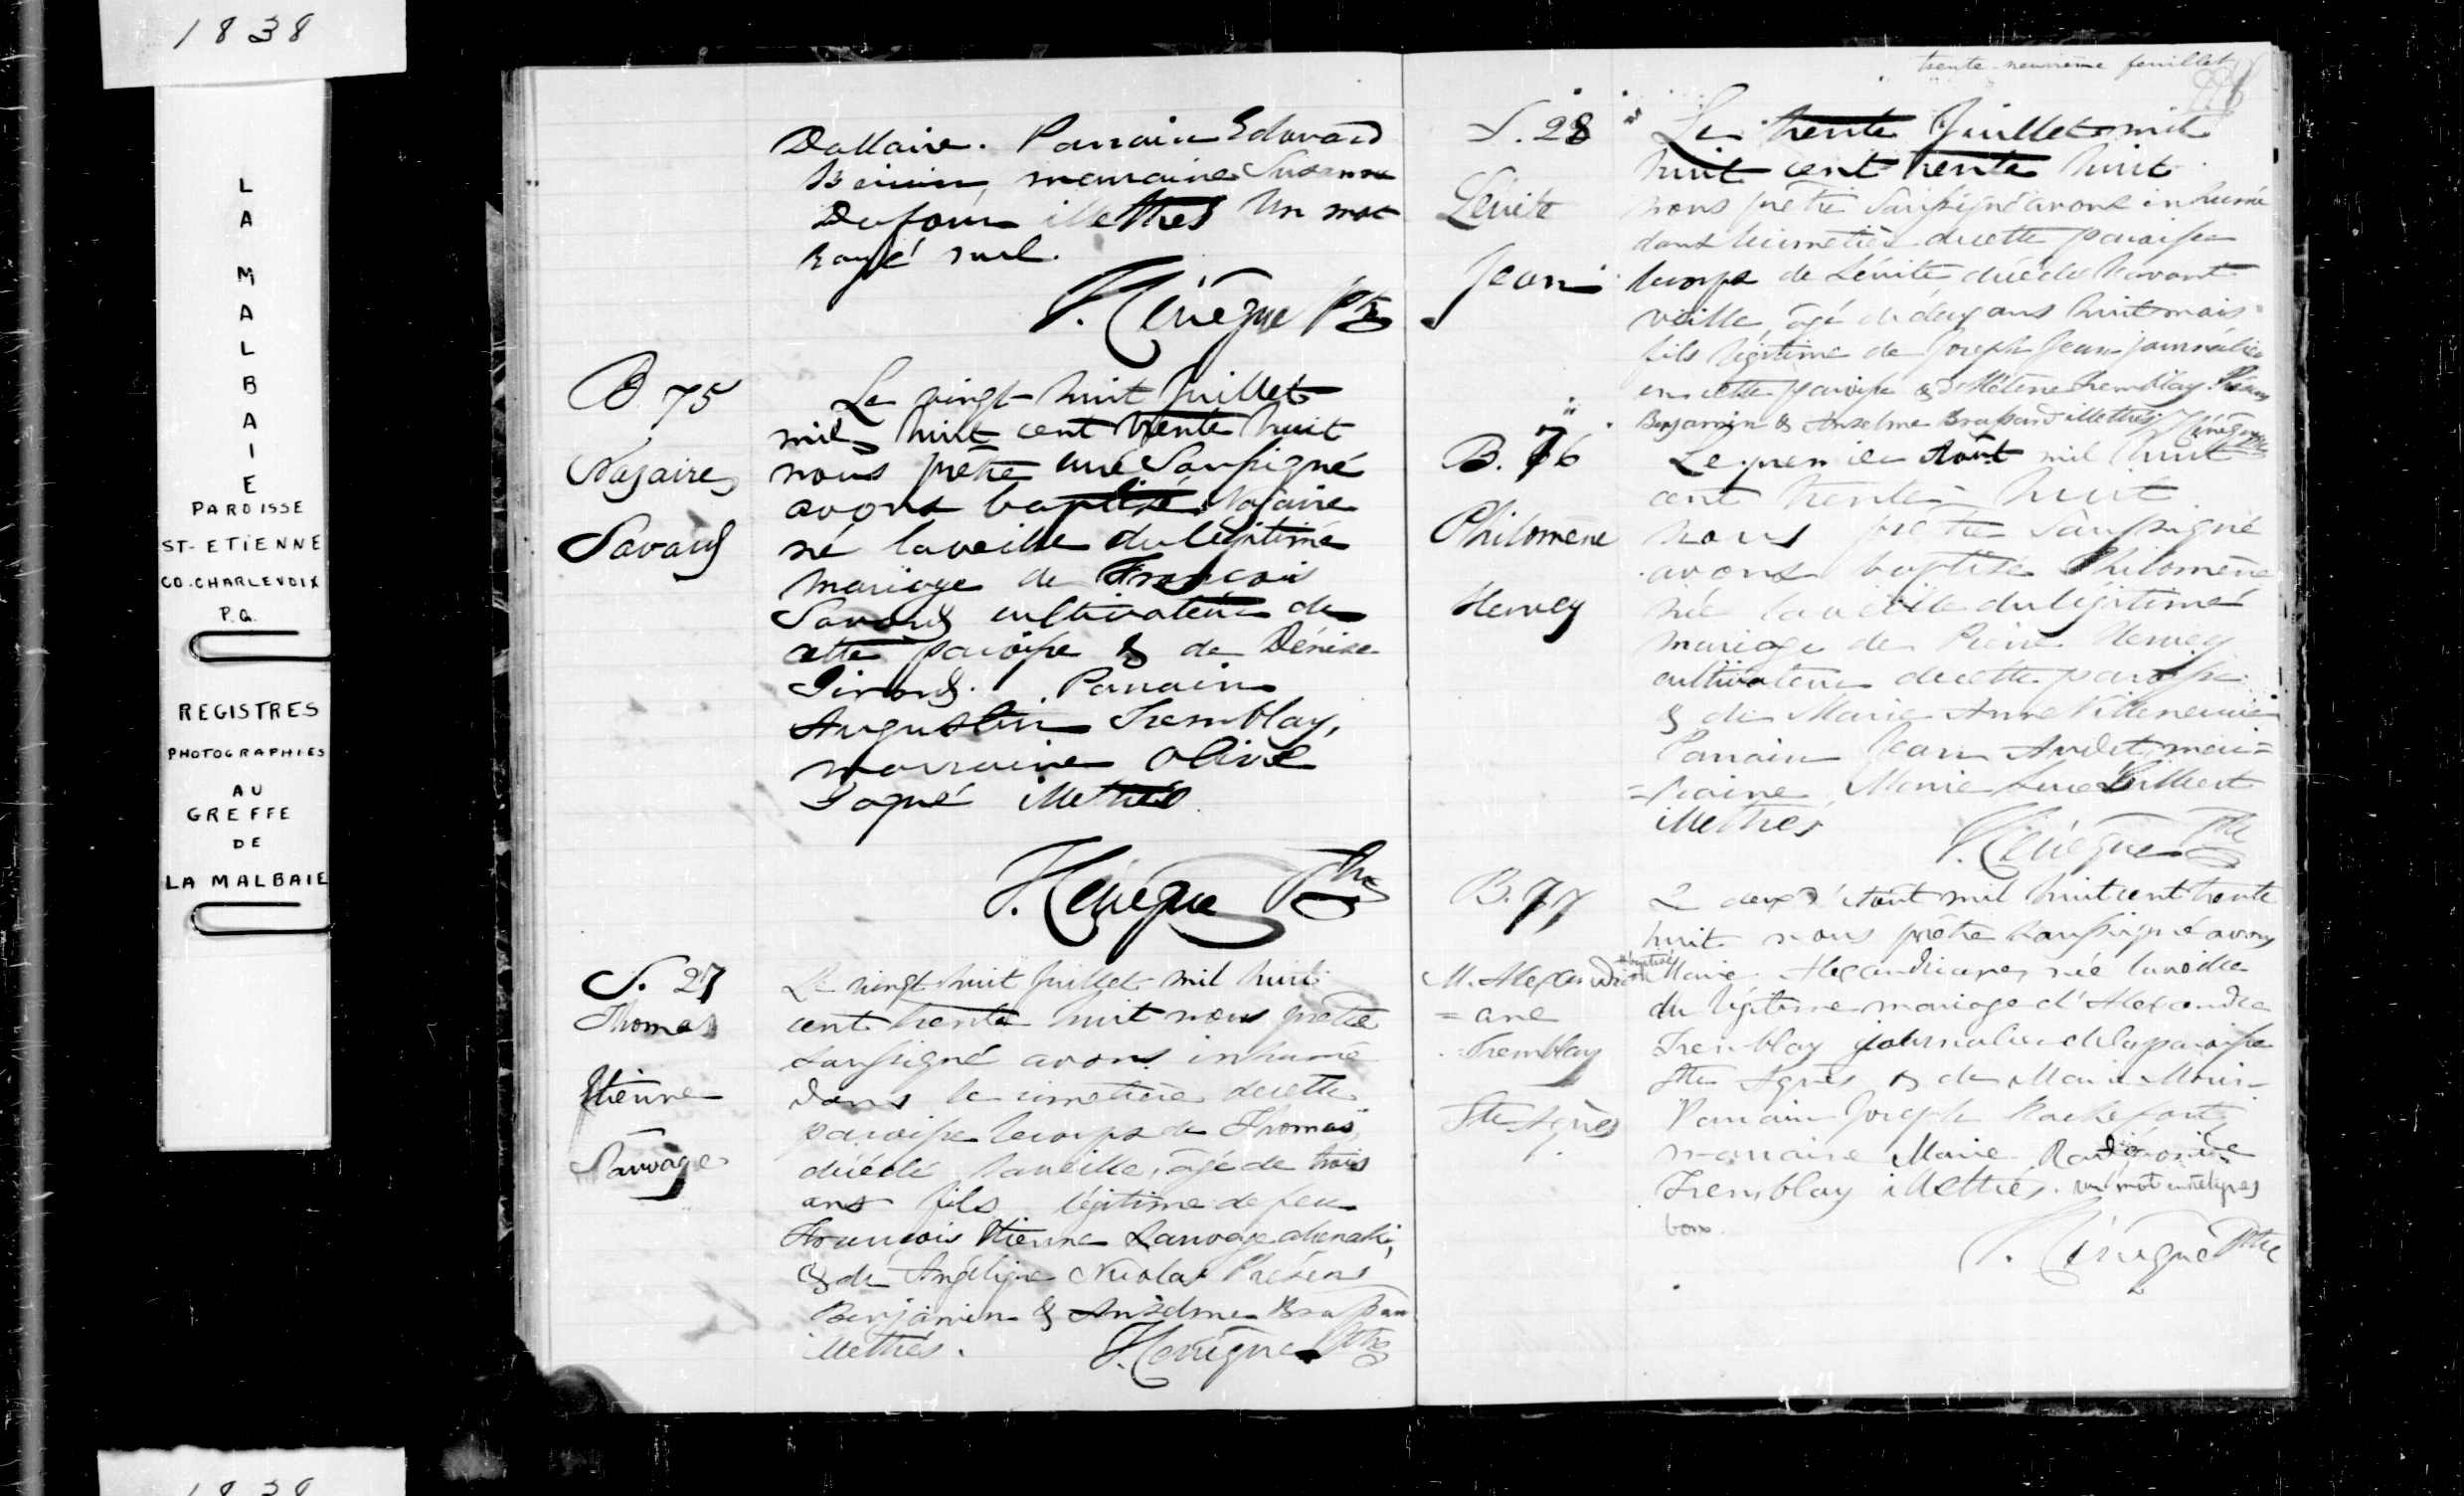 1838
LA MALBAIE
PAROISSE
ST-ETIENNE
CO. CHARLEVOIX
P.Q.
REGISTRES
PHOTOGRAPHIES
AU
GREFFE
DE
LA MALBAIE
1838
Dallaire. Parrain Edouard
marraine Susanne
Dufour illettrés Un mot
rayé nul.
B 75
Nazaire
Savard
Le vingt-huit Juillet
mil huit cent trente huit
nous prêtre curé Soussigné
avons baptisé Nazaire
né la veille du légitime
mariage de François
Savard cultivateur de
cette paroisse & de Dénise
Girard. Parrain
Augustin Tremblay,
marraine Olive
Gagné illettrés
Ptre
S. 27
Thomas
Etienne
Sauvage
Le vingt-huit Juillet mil huit
cent trente huit nous prêtre
soussigné avons inhumé
dans le cimetière de cette
paroisse le corps de Thomas,
décédé la veille, âgé de trois
ans fils légitime de feu
François Etienne Sauvage abenaki,
& de Angélique Nicolas Présens
Benjamin & Anselme
illettrés. Ptre
trente-neuvième feuillet
S. 28
Lévite
Jean
Le trente Juillet mil
huit cent trente huit
nous prêtre Soussigné avons inhumé
dans le cimetière de cette paroisse
le corps de Lévite, décédé l'avant
veille, âgé de deux ans huit mois
fils légitime de Joseph Jean journalier
en cette paroisse & d'Hélène Tremblay. Présens
Benjamin & Anselme Brassard illettrés
B. 76
Philomène
Hervey
Le premier Août mil huit
cent trente-huit
nous prêtre soussigné
avons baptisé Philomène
née la veille du légitime
mariage de Pierre Hervey
cultivateur de cette paroisse
& de Marie Anne Villeneuve
Parrain Jean Audet, mar=
=raine Marie Luce Gilbert
illettrés
Ptre
B. 77
M. Alexandri
=ane
Tremblay
Ste Agnès
Le deux d'Août mil huit cent trente
huit nous prêtre soussigné avons
baptisé Marie Alexandriane, née la veille
du légitime mariage d'Alexandre
Tremblay journalier de la paroisse
Ste Agnès & de Marie
Parrain Joseph Rochefort
marraine Marie
Tremblay illettrés. un mot entreligne
bon.
Ptre